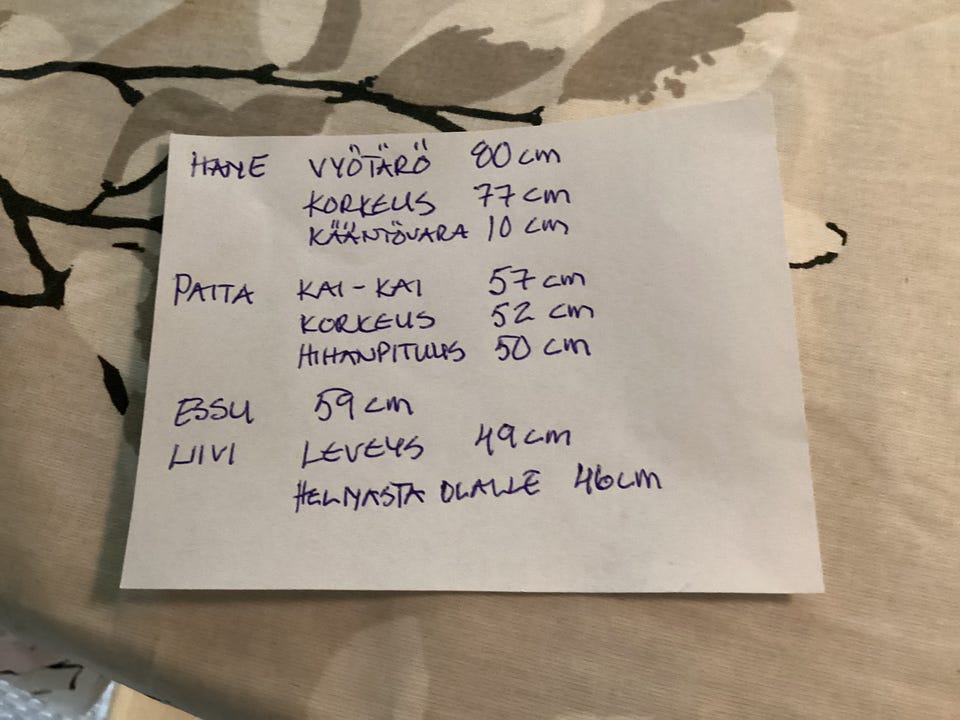 HAME VYÖTÄRÖ 80 cm
KORKEUS 77 cm
KÄÄNTÖVARA 10 cm
PAITA KAI-KAI 57 cm
KORKEUS 52 cm
HIHANPITUUS 50 cm
ESSU 59 cm
LIIVI LEVEYS 49 cm
HELMASTA OLALLE 46 cm